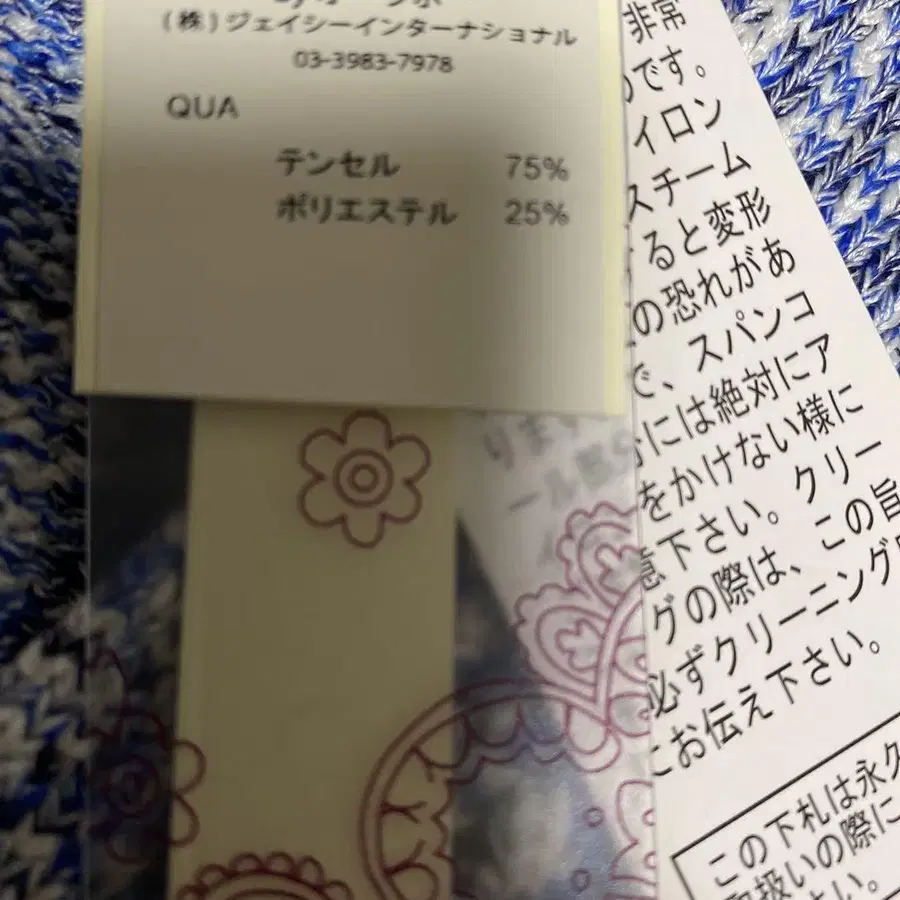 (株)ジェイシーインターナショナル
03-3983-7978
QUA
テンセル 75%
ポリエステル 25%
非常
です。
イロン
スチーム
ると変形
の恐れがあ
で、スパンコ
には絶対にア
をかけない様に
意下さい。クリー
グの際は、この旨
必ずクリーニング
にお伝え下さい。
この下札は永久
取扱いの際に
さい。